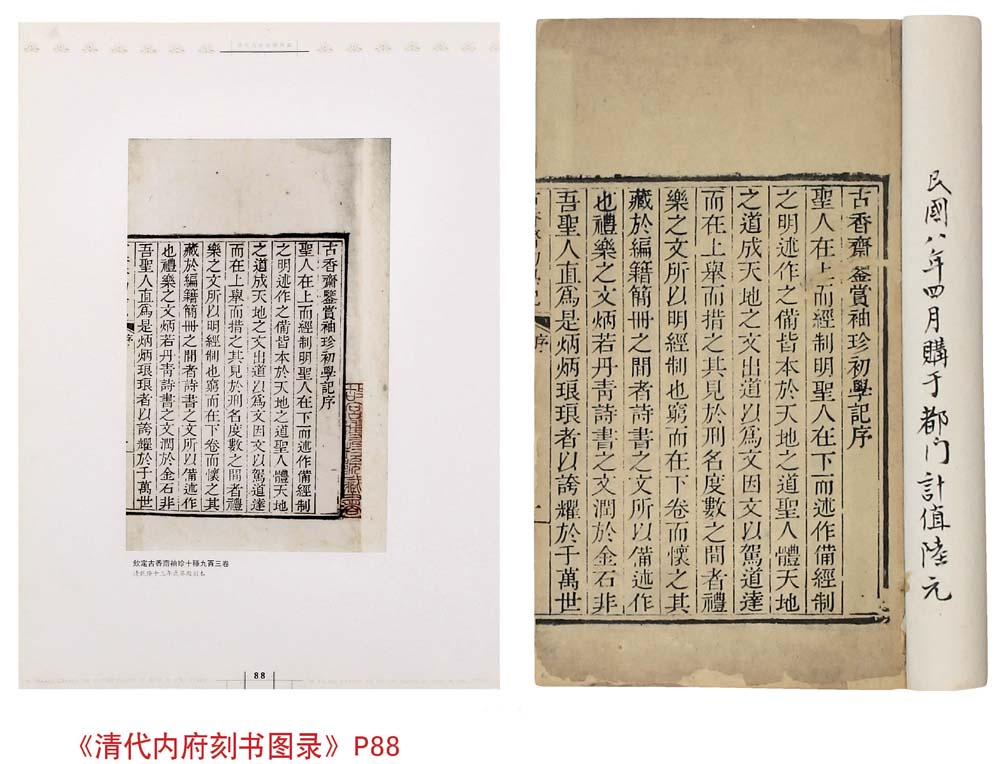 古香齋鑒賞袖珍初學記序
聖人在上而經制明聖人在下而述作備經制
之明述作之備皆本於天地之道聖人體天地
之道成天地之文出道以爲文因文以駕道達
而在上舉而措之其見於刑名度數之間者禮
樂之文所以明經制也窮而在下卷而懷之其
藏於編籍簡冊之間者詩書之文所以備述作
也禮樂之文炳若丹青詩書之文潤於金石非
吾聖人直爲是炳炳琅琅者以誇耀於千萬世
序
欽定古香齋袖珍十種九百三卷
88
民國八年四月購于都门計值陸元
古香齋鍳賞袖珍初學記序
聖人在上而經制明聖人在下而述作備經制
之明述作之備皆本於天地之道聖人體天地
之道成天地之文出道以爲文因文以駕道達
而在上舉而措之其見於刑名度數之間者禮
樂之文所以明經制也窮而在下卷而懷之其
藏於編籍簡冊之間者詩書之文所以備述作
也禮樂之文炳若丹青詩書之文潤於金石非
吾聖人直爲是炳炳琅琅者以誇耀於千萬世
序
《清代内府刻书图录》P88